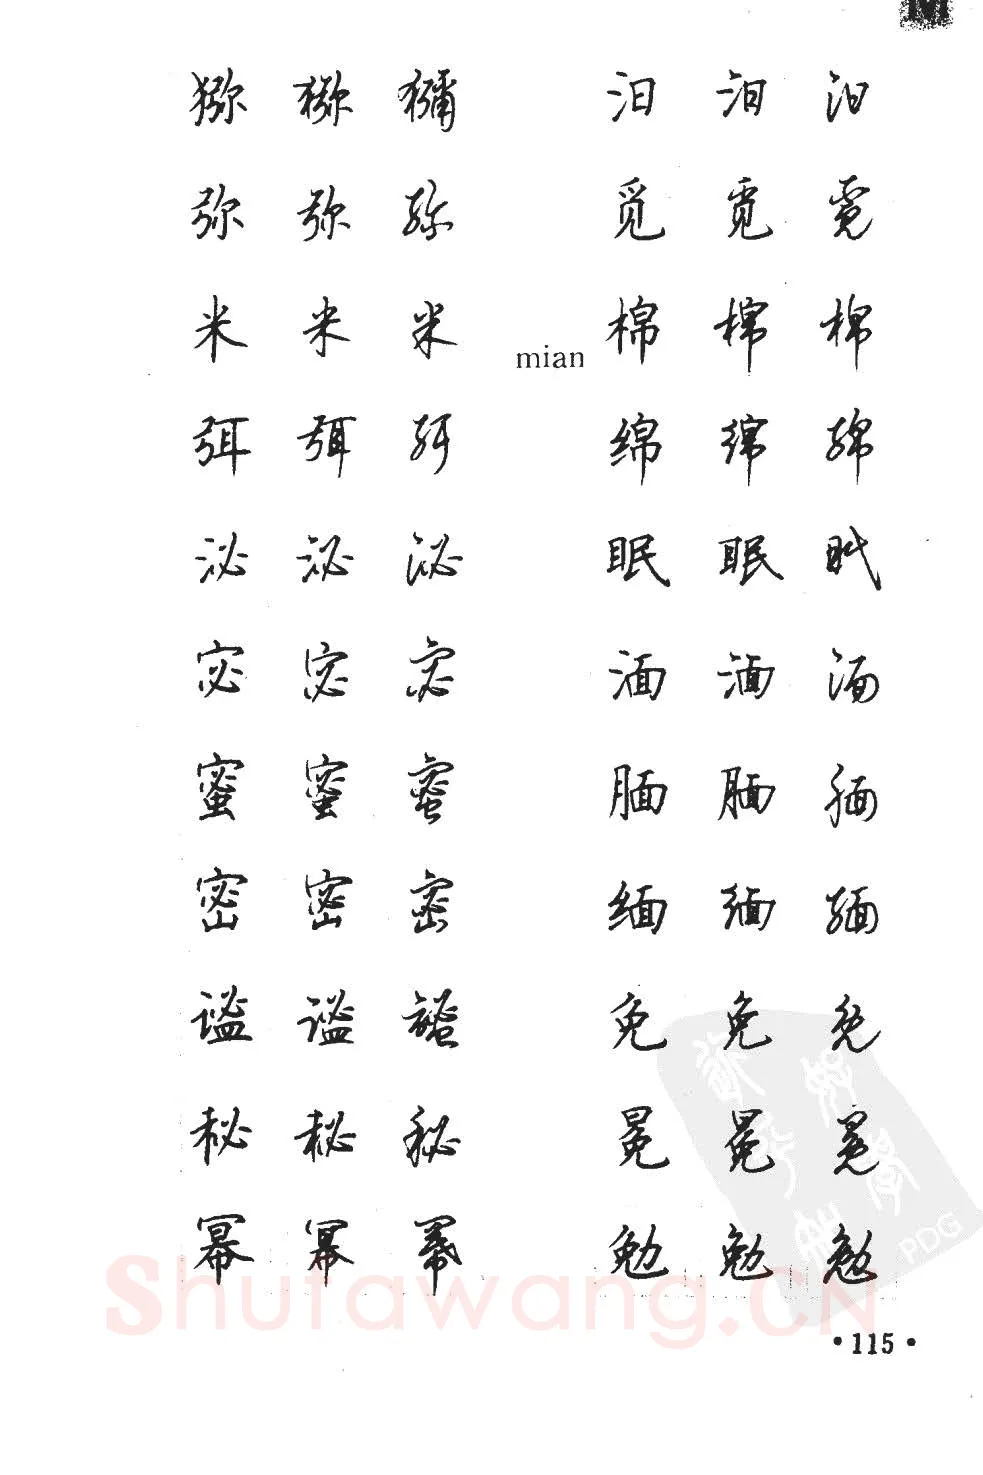 M
猕 猕 獼
弥 弥 弥
米 米 米
弭 弭 弭
泌 泌 泌
宓 宓 宓
蜜 蜜 蜜
密 密 密
谧 谧 谧
秘 秘 秘
幂 幂 幂
汨 汨 汨
觅 觅 觅
mian 棉 棉 棉
绵 绵 绵
眠 眠 眠
湎 湎 湎
腼 腼 腼
缅 缅 缅
免 免 免
冕 冕 冕
勉 勉 勉
PDG
Shufawang.CN
•115•